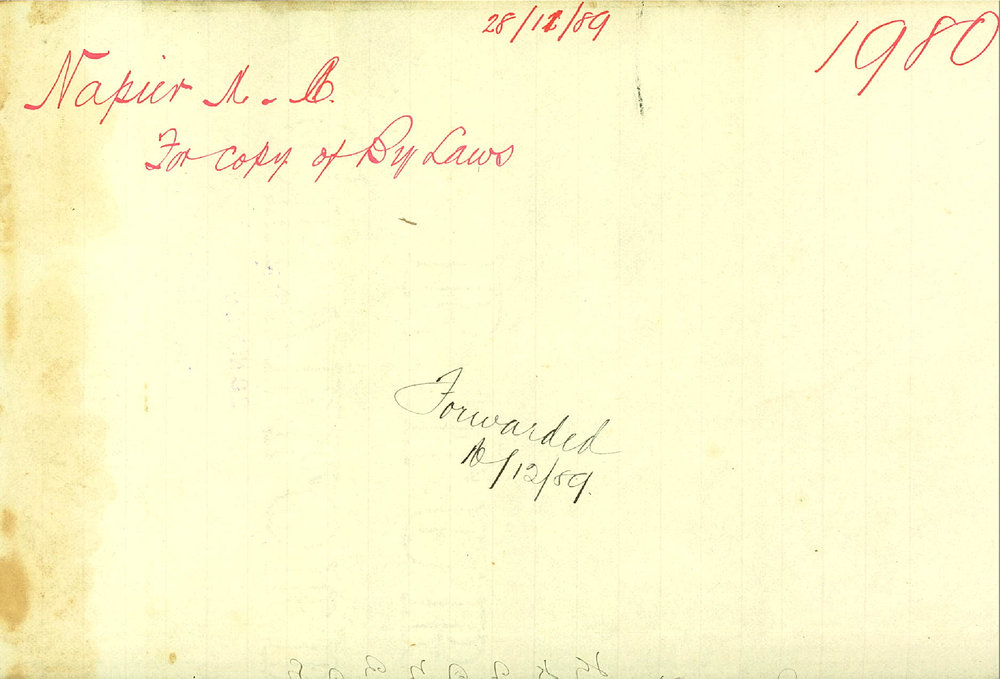 28/11/89
1980
Napier
For copy of By Laws
Forwarded
10/12/89.